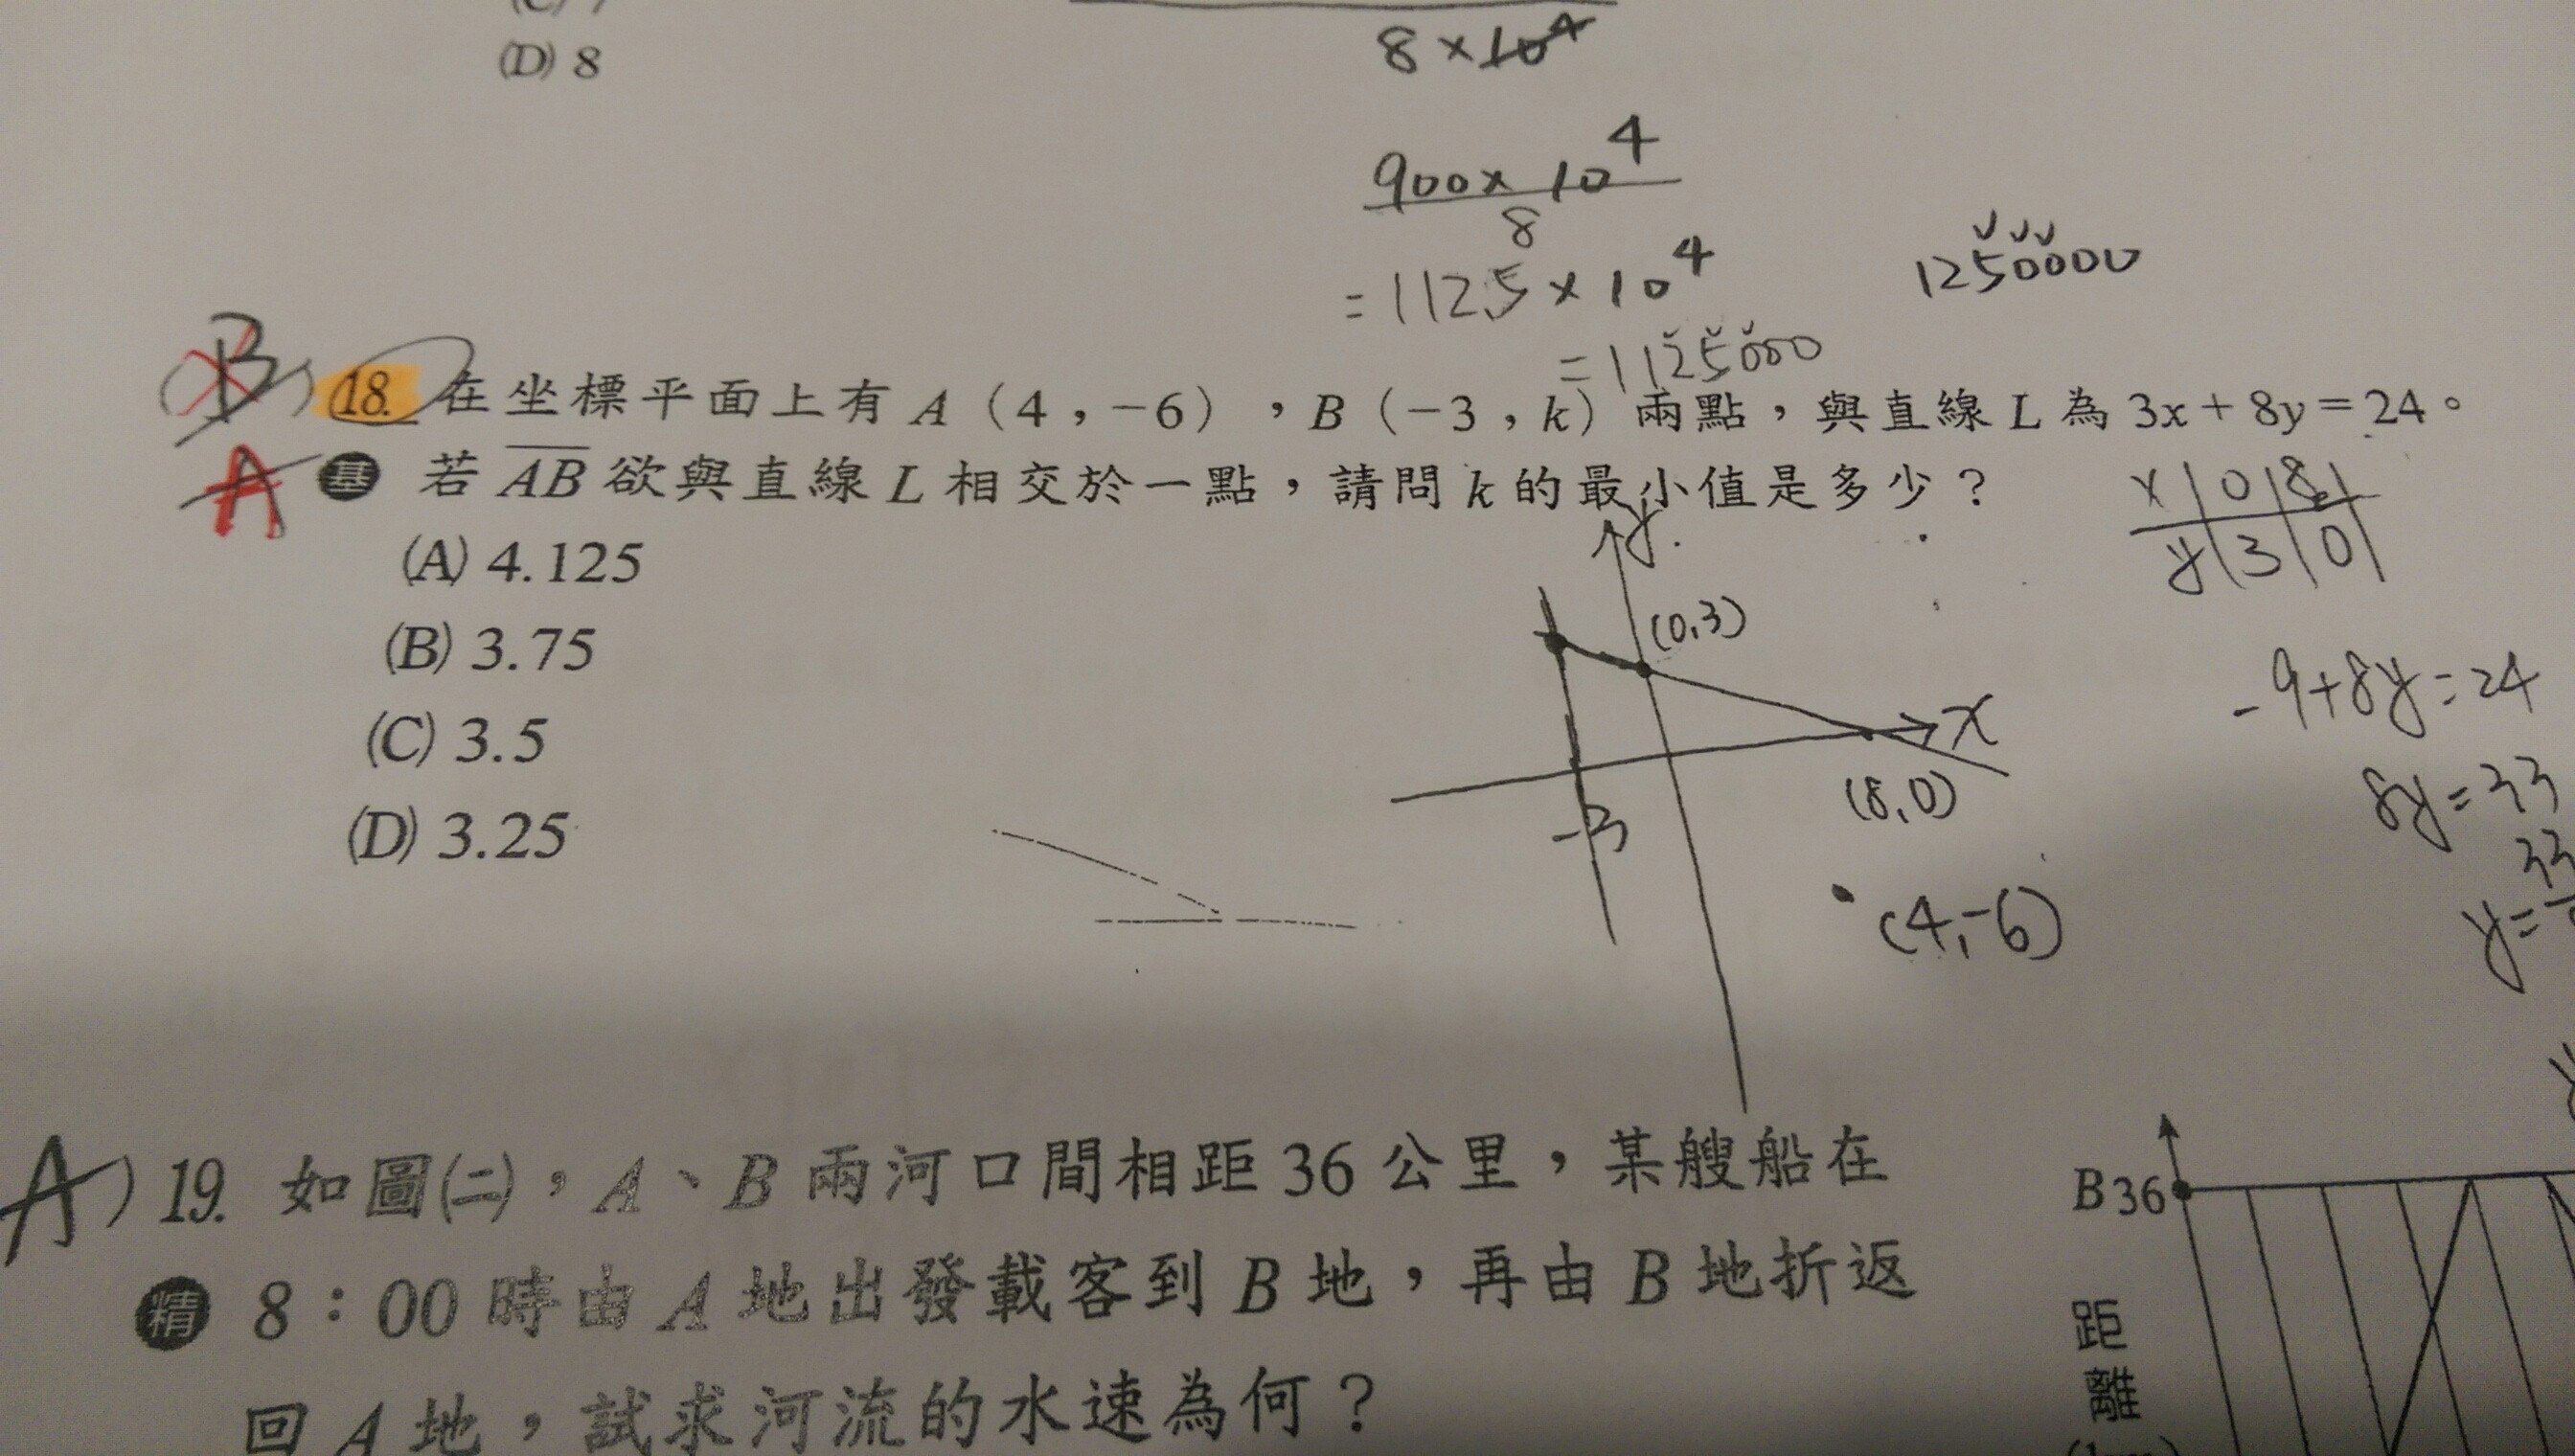 (D) 8
8×10⁴
900×10⁴
8
=112.5×10⁴
=1125000
1250000
B
18. 在坐標平面上有 A（4，−6），B（−3，k）兩點，與直線 L 為 3x＋8y＝24。
A
基 若 AB 欲與直線 L 相交於一點，請問 k 的最小值是多少？
(A) 4.125
(B) 3.75
(C) 3.5
(D) 3.25
x | 0 | 8 |
y | 3 | 0 |
y
(0,3)
x
(8,0)
-3
(4,-6)
-9+8y=24
8y=33
y=33
A) 19. 如圖㈡，A、B 兩河口間相距 36 公里，某艘船在
精 8：00 時由 A 地出發載客到 B 地，再由 B 地折返
回 A 地，試求河流的水速為何？
B 36
距
離